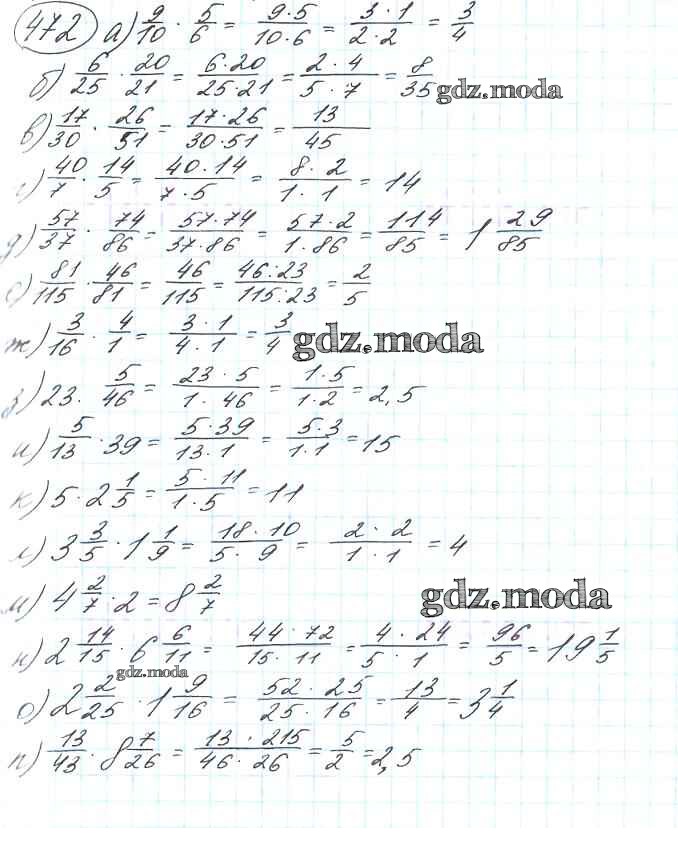 472 а) 9/10 · 5/6 = 9·5/10·6 = 3·1/2·2 = 3/4
б) 6/25 · 20/21 = 6·20/25·21 = 2·4/5·7 = 8/35 gdz.moda
в) 17/30 · 26/51 = 17·26/30·51 = 13/45
г) 40/7 · 14/5 = 40·14/7·5 = 8·2/1·1 = 14
д) 57/37 · 74/86 = 57·74/37·86 = 57·2/1·86 = 114/85 = 1 29/85
е) 81/115 · 46/81 = 46/115 = 46:23/115:23 = 2/5
ж) 3/16 · 4/1 = 3·1/4·1 = 3/4 gdz.moda
з) 23 · 5/46 = 23·5/1·46 = 1·5/1·2 = 2,5
и) 5/13 · 39 = 5·39/13·1 = 5·3/1·1 = 15
к) 5 · 2 1/5 = 5·11/1·5 = 11
л) 3 3/5 · 1 1/9 = 18·10/5·9 = 2·2/1·1 = 4
м) 4 2/7 · 2 = 8 2/7 gdz.moda
н) 2 14/15 · 6 6/11 = 44·72/15·11 = 4·24/5·1 = 96/5 = 19 1/5
gdz.moda
о) 2 2/25 · 1 9/16 = 52·25/25·16 = 13/4 = 3 1/4
п) 13/43 · 8 7/26 = 13·215/46·26 = 5/2 = 2,5